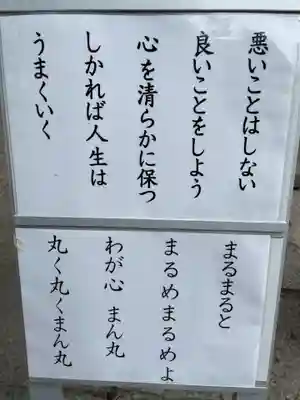 悪いことはしない
良いことをしよう
心を清らかに保つ
しかれば人生は
うまくいく
まるまると
まるめまるめよ
わが心 まん丸
丸く丸くまん丸